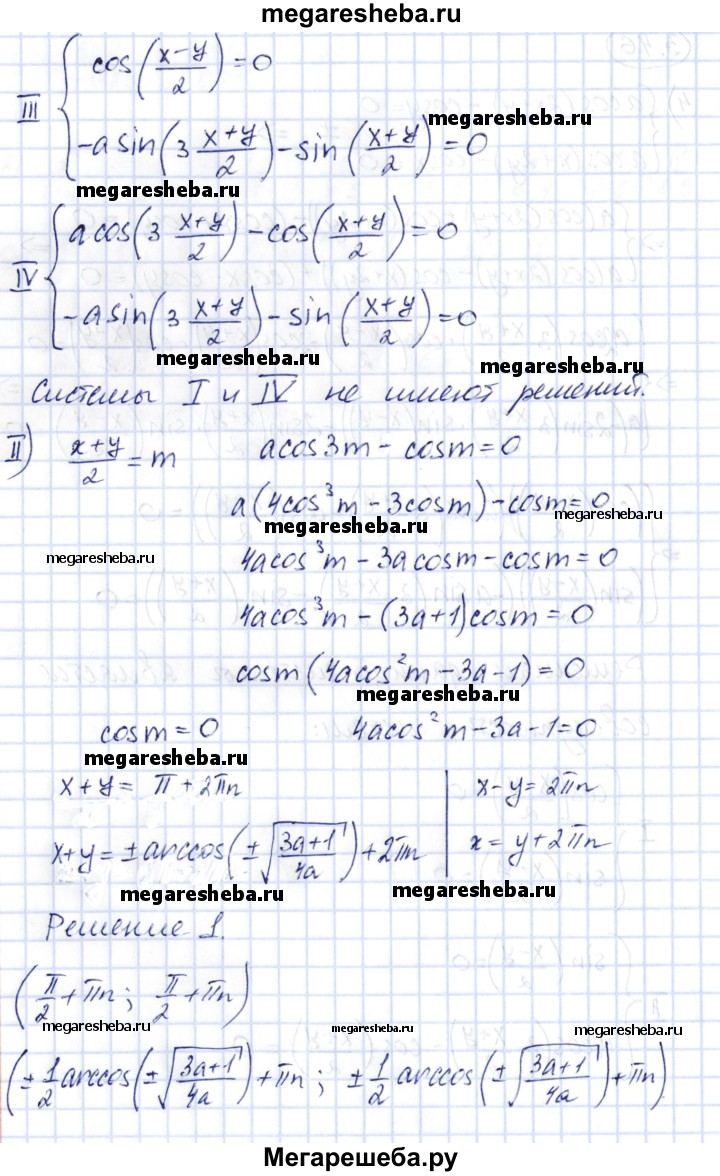 megaresheba.ru
III { cos((x-y)/2) = 0
-a sin(3 (x+y)/2) - sin((x+y)/2) = 0
megaresheba.ru
megaresheba.ru
IV { a cos(3 (x+y)/2) - cos((x+y)/2) = 0
-a sin(3 (x+y)/2) - sin((x+y)/2) = 0
megaresheba.ru
megaresheba.ru
Системы I и IV не имеют решений.
II) (x+y)/2 = m acos3m - cosm = 0
a(4cos³m - 3cosm) - cosm = 0
megaresheba.ru
megaresheba.ru
megaresheba.ru
4acos³m - 3acosm - cosm = 0
4acos³m - (3a+1)cosm = 0
cosm(4acos²m - 3a - 1) = 0
megaresheba.ru
cosm = 0 4acos²m - 3a - 1 = 0
megaresheba.ru
x + y = π + 2πn | x - y = 2πn
x+y = ± arccos(±√((3a+1)/4a)) + 2πn | x = y + 2πn
megaresheba.ru
megaresheba.ru
Решение 1.
(π/2 + πn; π/2 + πn)
megaresheba.ru
megaresheba.ru
megaresheba.ru
(±1/2 arccos(±√((3a+1)/4a)) + πn; ±1/2 arccos(±√((3a+1)/4a)) + πn)
megaresheba.ru
megaresheba.ru
Мегарешеба.ру